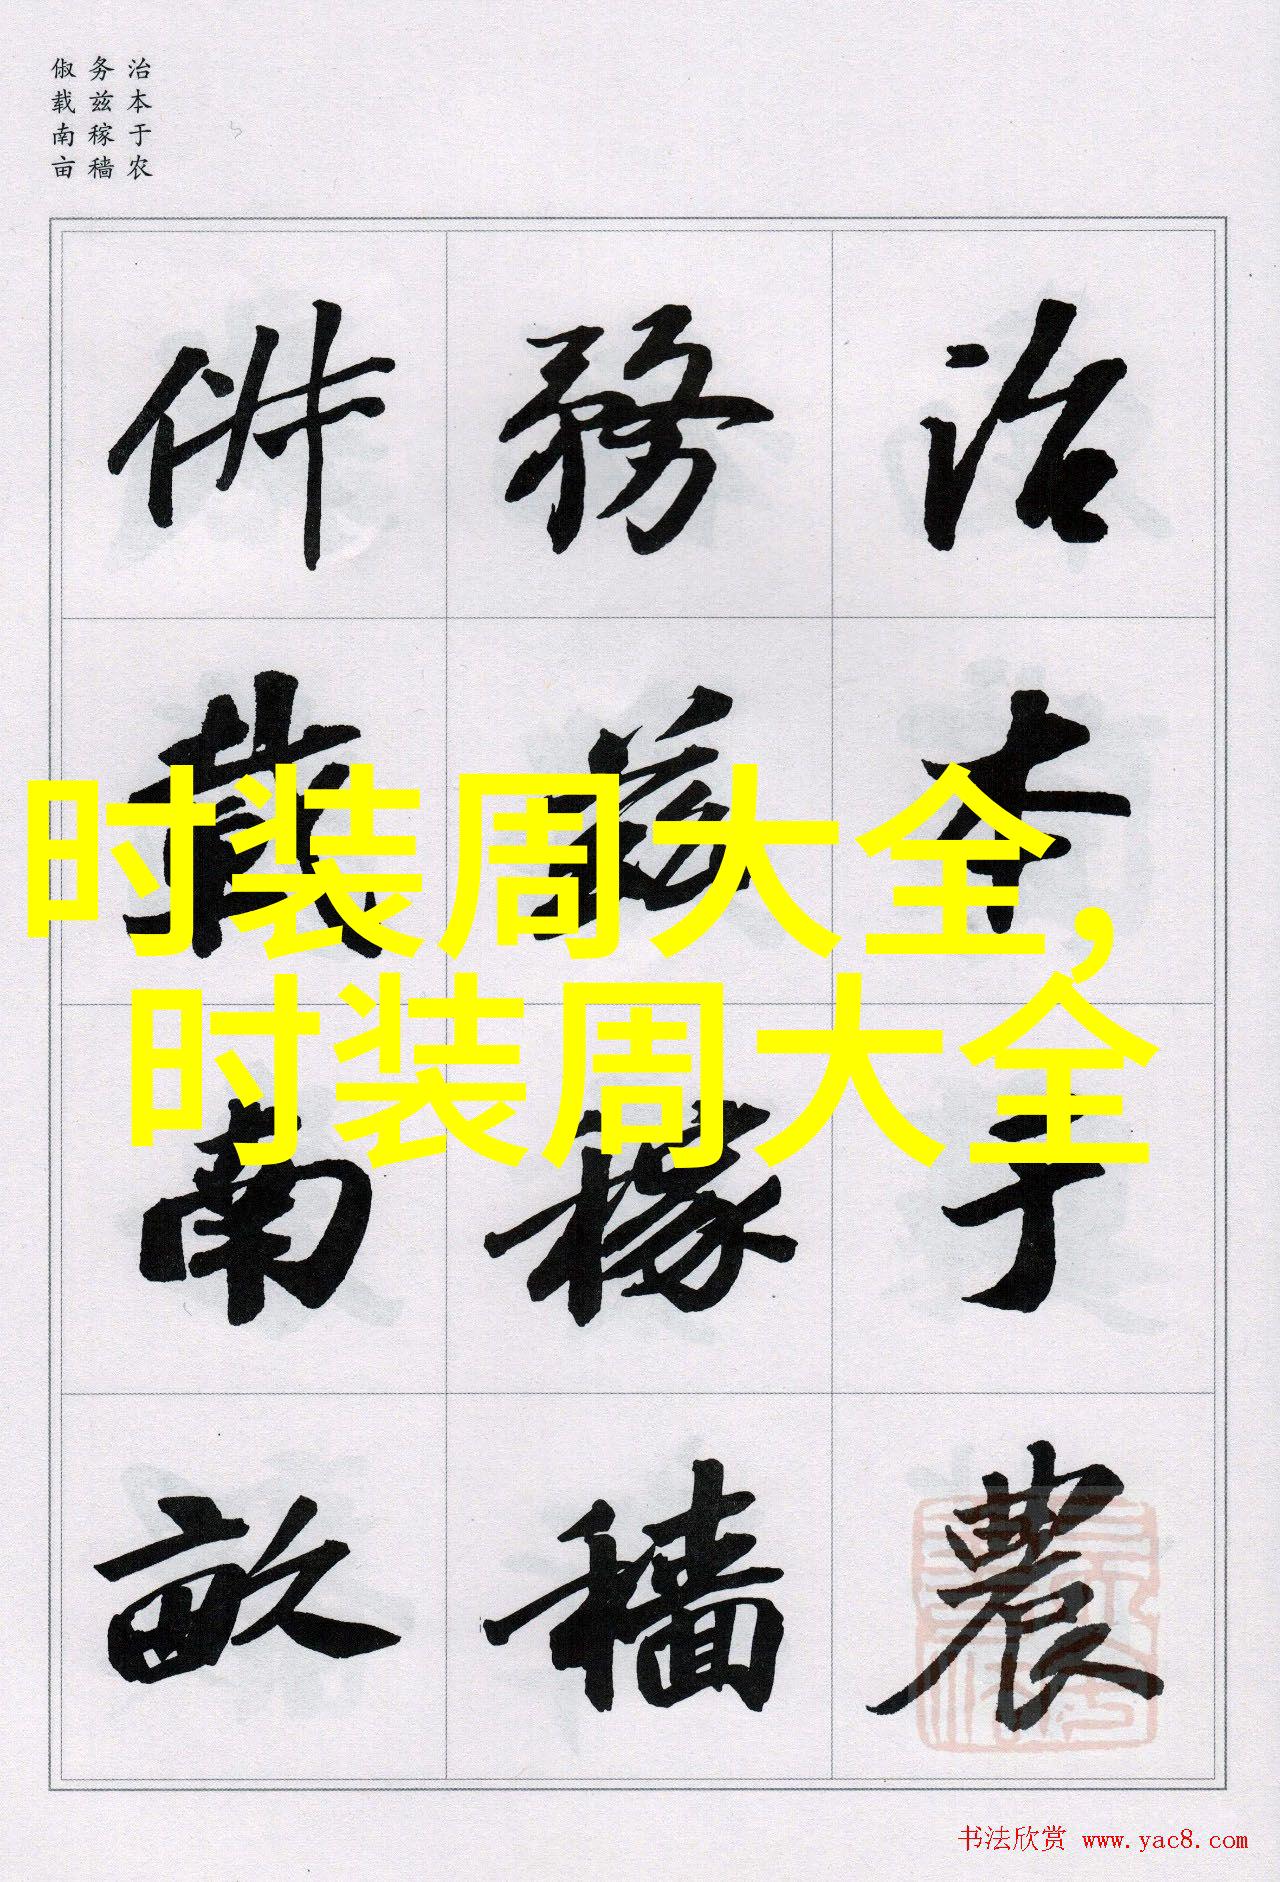 治本于农
务兹稼穑
俶载南亩
治本于農
務兹稼穡
俶載南畝
时装周大全,
时装周大全
书法欣赏 www.yac8.com